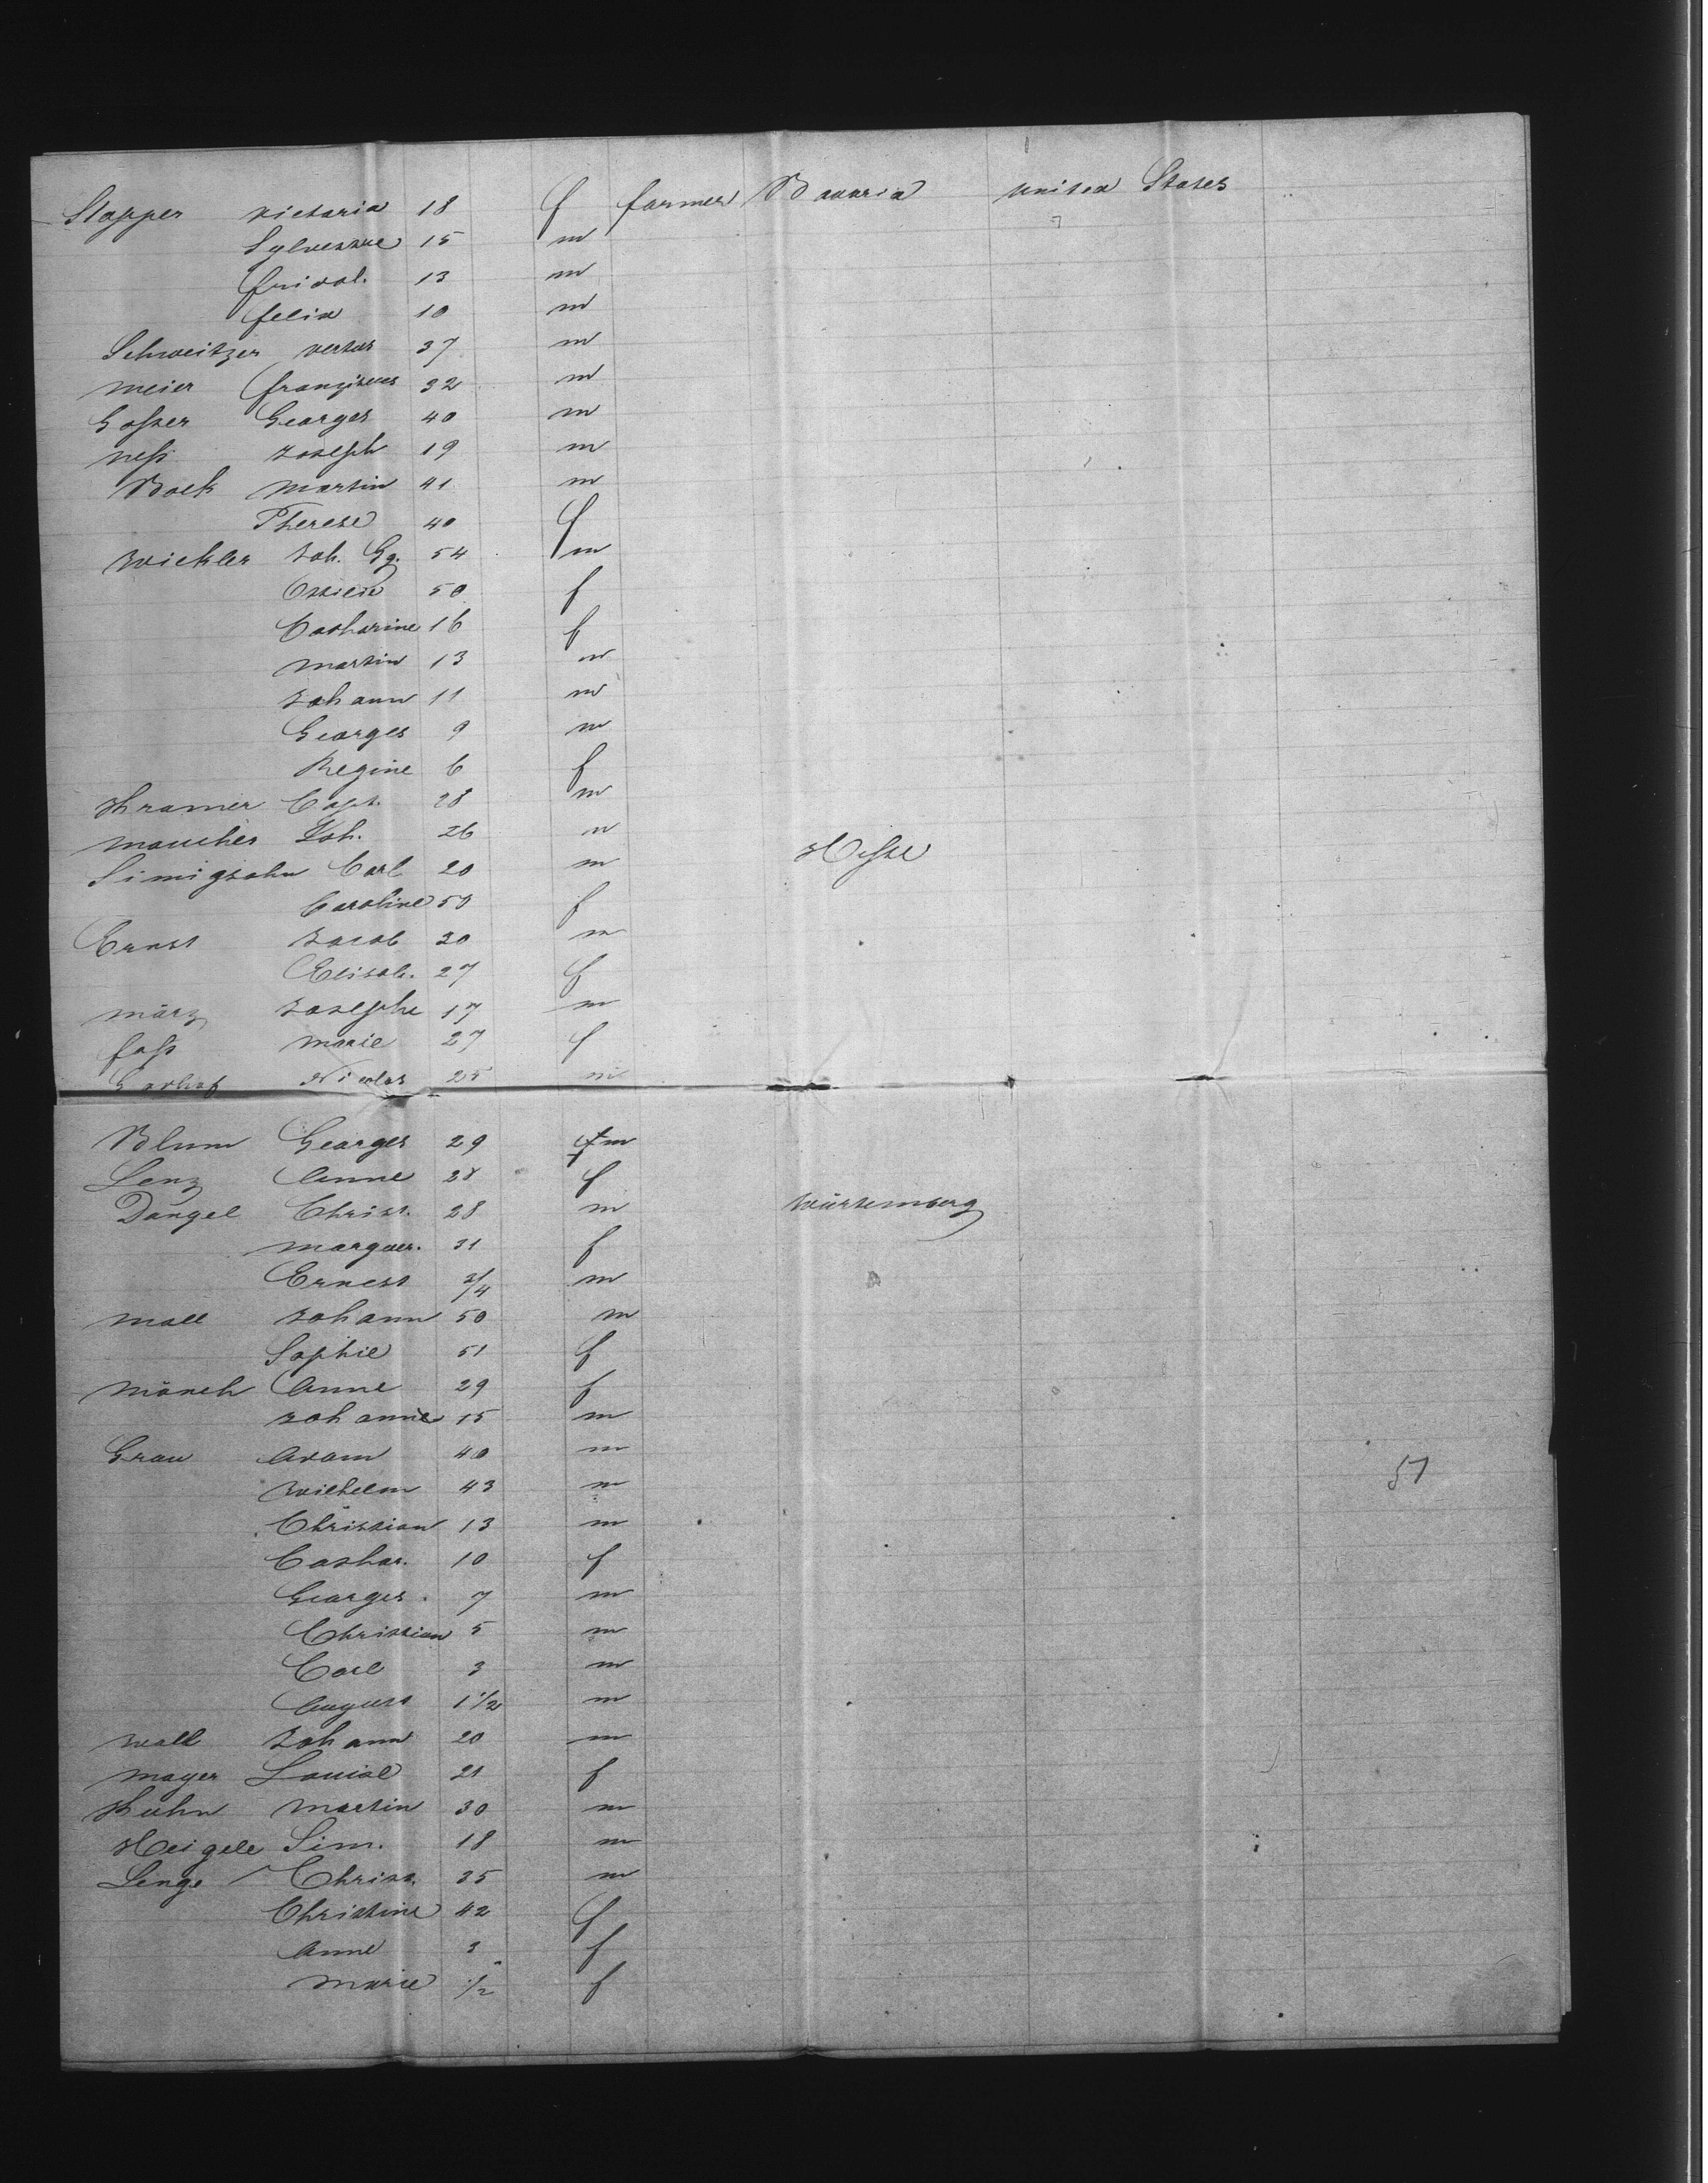 Stapper victoria 18 f farmer Bavaria united States
Sylvestre 15 m
fridol. 13 m
felix 10 m
Schweitzer 37 m
meier franziscus 32 m
Gasser Georges 40 m
ness Joseph 19 m
Bock martin 41 m
Therese 40 f
Zwickler Joh. Gg. 54 m
50 f
Catharine 16 f
martin 13 m
Johann 11 m
Georges 9 m
Regine 6 f
Kramer Casp. 28 m
maucher Joh. 26 m
Simigsohn Carl 20 m Hesse
Caroline 50 f
Ernst Jacob 20 m
Elisab. 27 f
märz Josephe 17 m
fass marie 27 f
Nicolas 25 m
Blum Georges 29 m
Lenz Anne 28 f
Dängel Christ. 28 m würtemberg
marguer. 31 f
Ernest 3/4 m
mall Johann 50 m
Sophie 51 f
mönch Anne 29 f
Johanne 15 m
Grau Adam 40 m
Wilhelm 43 m 51
Christian 13 m
Cathar. 10 f
Georges. 7 m
Christian 5 m
Carl 3 m
August 1 1/2 m
wall Johann 20 m
mayer Louise 21 f
Kuhn martin 30 m
Heigele Sim. 18 m
Lenge Christ. 35 m
Christine 42 f
Anne 3 f
marie 1/2 f